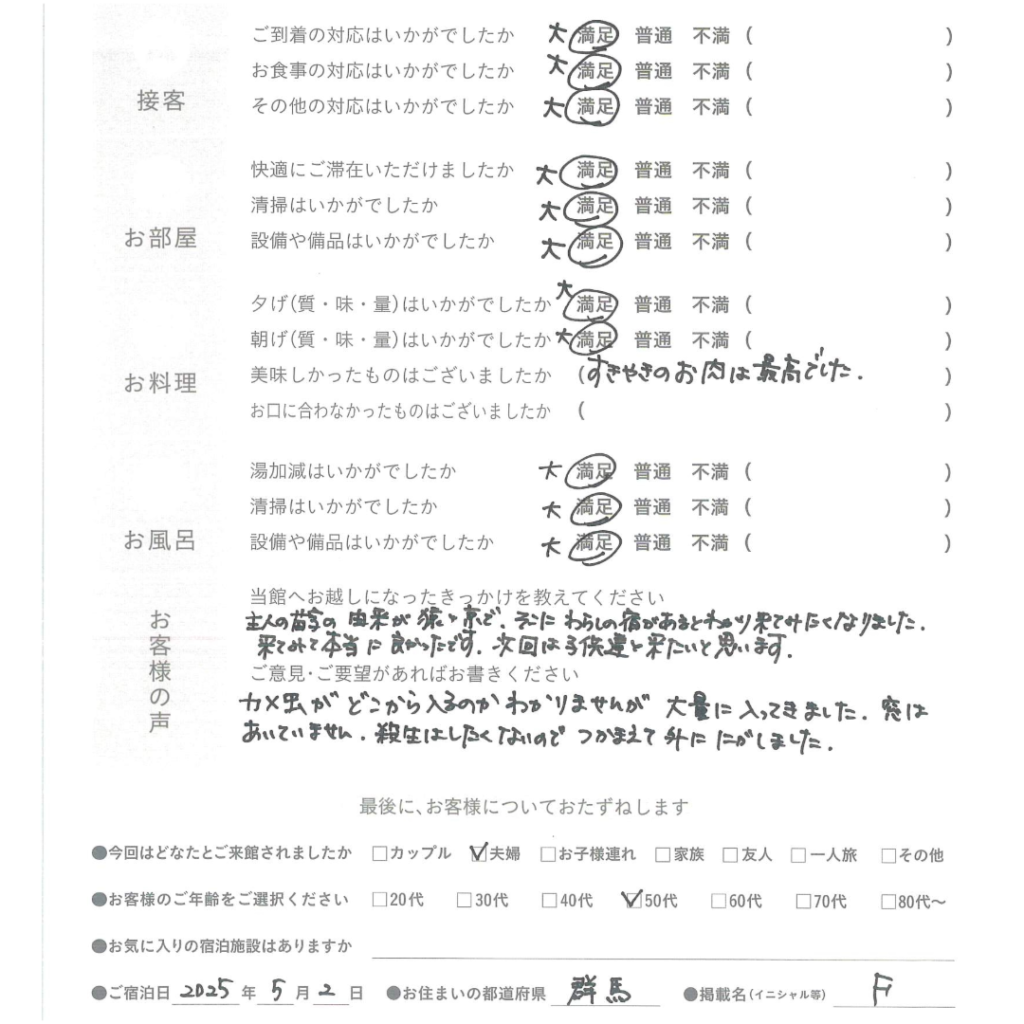 ご到着の対応はいかがでしたか 大 満足 普通 不満 ( )
お食事の対応はいかがでしたか 大 満足 普通 不満 ( )
接客
その他の対応はいかがでしたか 大 満足 普通 不満 ( )
快適にご滞在いただけましたか 大 満足 普通 不満 ( )
清掃はいかがでしたか 大 満足 普通 不満 ( )
お部屋
設備や備品はいかがでしたか 大 満足 普通 不満 ( )
夕げ(質・味・量)はいかがでしたか 大 満足 普通 不満 ( )
朝げ(質・味・量)はいかがでしたか 大 満足 普通 不満 ( )
お料理
美味しかったものはございましたか (すきやきのお肉は最高でした. )
お口に合わなかったものはございましたか ( )
湯加減はいかがでしたか 大 満足 普通 不満 ( )
清掃はいかがでしたか 大 満足 普通 不満 ( )
お風呂
設備や備品はいかがでしたか 大 満足 普通 不満 ( )
お客様の声
当館へお越しになったきっかけを教えてください
主人の苗字の由来が猿ヶ京で、そこにわらしの宿があるとわかり来てみたくなりました.
来てみて本当に良かったです. 次回は子供達と来たいと思います.
ご意見・ご要望があればお書きください
カメ虫がどこから入るのかわかりませんが大量に入ってきました. 窓は
あいていません. 殺生はしたくないのでつかまえて外ににがしました.
最後に、お客様についておたずねします
●今回はどなたとご来館されましたか □カップル ☑夫婦 □お子様連れ □家族 □友人 □一人旅 □その他
●お客様のご年齢をご選択ください □20代 □30代 □40代 ☑50代 □60代 □70代 □80代〜
●お気に入りの宿泊施設はありますか
●ご宿泊日 2025 年 5 月 2 日 ●お住まいの都道府県 群馬 ●掲載名(イニシャル等) F